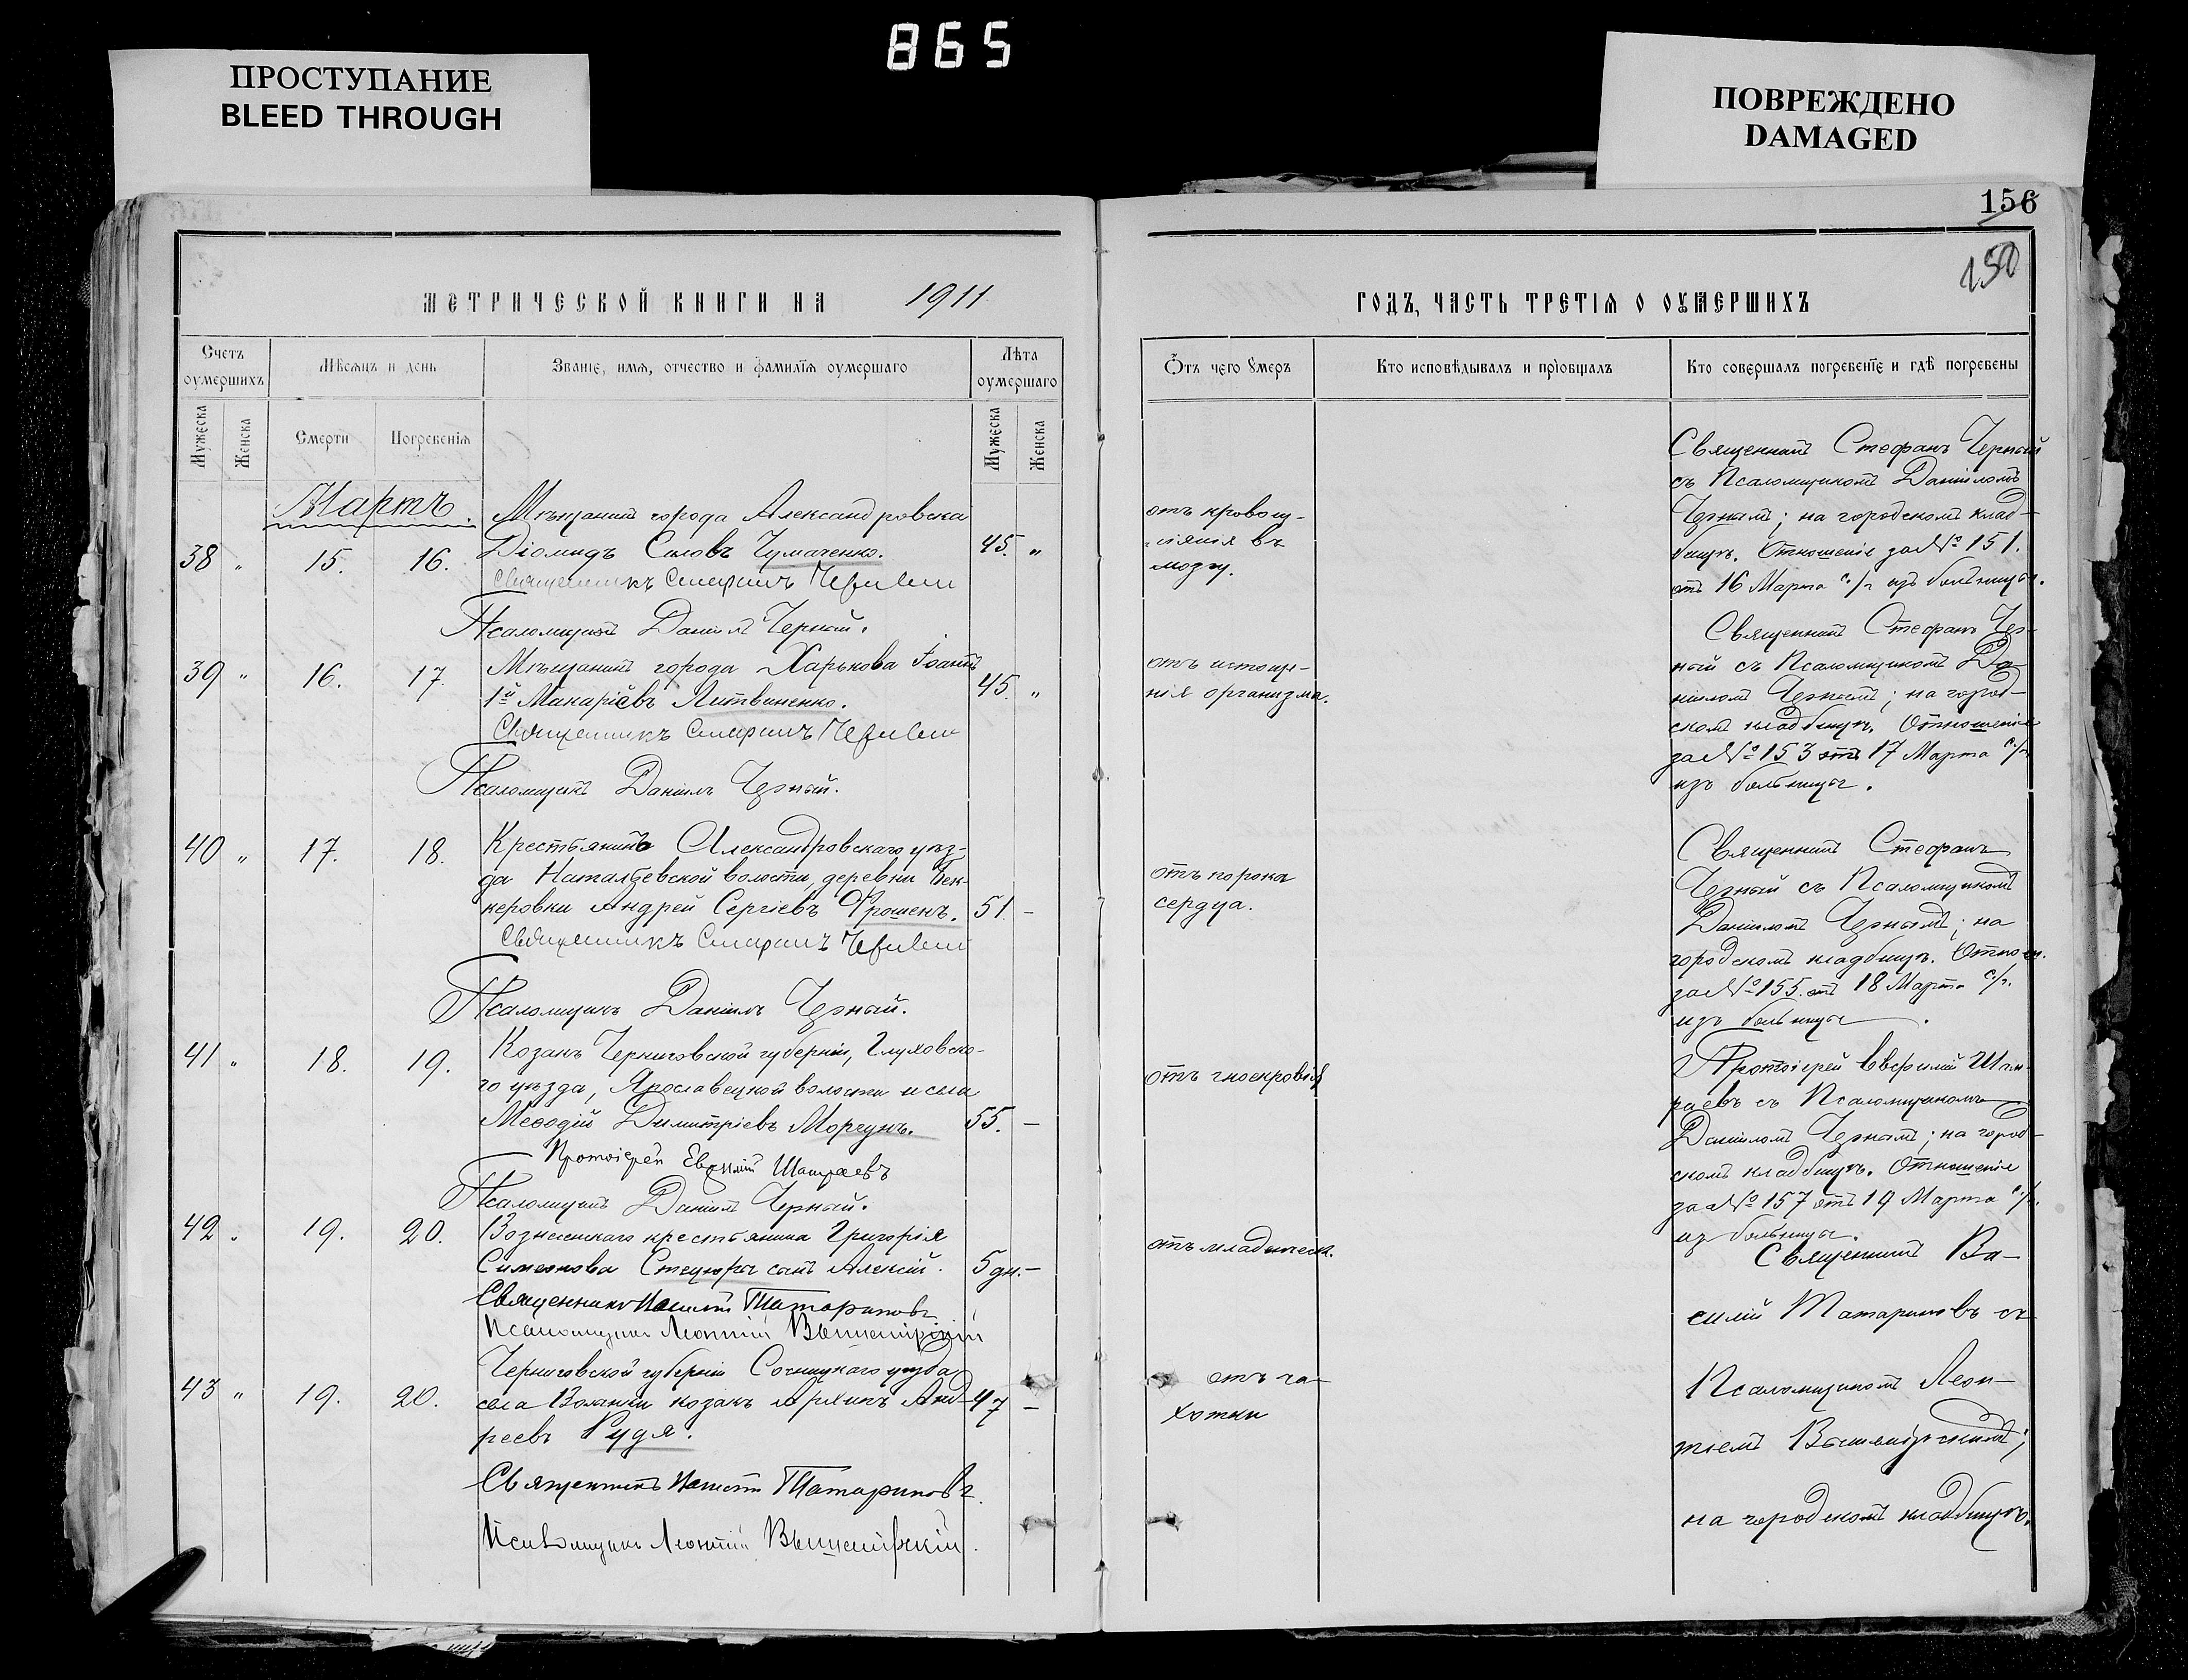 865
ПРОСТУПАНИЕ
BLEED THROUGH
ПОВРЕЖДЕНО
DAMAGED
156
150
МЕТРИЧЕСКОЙ КНИГИ НА 1911
Счетъ оумершихъ
Мѣсяцъ и день
Званіе, имя, отчество и фамилія оумершаго
Лѣта оумершаго
Мужеска
Женска
Смерти
Погребенія
Мужеска
Женска
Мартъ.
Мѣщанинъ города Александровска
38 " 15. 16. Діомидъ Силовъ Чумаченко. 45. "
Священникъ Стефанъ Черный
Псаломщикъ Даніилъ Черный.
Мѣщанинъ города Харькова Іоаннъ
39 " 16. 17. 1й Макаріевъ Литвиненко. 45. "
Священникъ Стефанъ Черный
Псаломщикъ Даніилъ Черный.
40 " 17. 18. Крестьянинъ Александровскаго уѣз-
да Натальевской волости, деревни
керовки Андрей Сергіевъ Фрошенъ. 51. -
Священникъ Стефанъ Черный
Псаломщикъ Даніилъ Черный.
41 " 18. 19. Козакъ Черниговской губерніи, Глуховско-
го уѣзда, Ярославецкой волости и села
Меѳодій Димитріевъ Моргунъ. 55. -
Протоіерей Евфимій
Псаломщикъ Даніилъ Черный.
42 " 19. 20. Вознесенскаго крестьянина Григорія
Симеонова Стецюры сынъ Алексій. 5 дн. -
Священникъ Татариновъ
Псаломщикъ Леонтій
Черниговской губерніи Сосницкаго уѣзда
43 " 19. 20. села Волынки козакъ Архипъ Анд- 47 -
реевъ Рудя.
Священникъ Татариновъ.
Псаломщикъ Леонтій
ГОДЪ, ЧАСТЬ ТРЕТІЯ О ОУМЕРШИХЪ
Отъ чего умеръ
Кто исповѣдывалъ и пріобщалъ
Кто совершалъ погребеніе и гдѣ погребены
отъ кровоиз-
ліянія въ
мозгу.
Священникъ Стефанъ Черный
съ Псаломщикомъ Даніиломъ
Чернымъ; на городскомъ клад-
бищѣ. Отношеніе за № 151.
отъ 16 Марта с./г. изъ больницы.
отъ истоще-
нія организма.
Священникъ Стефанъ Чер-
ный съ Псаломщикомъ Да-
ніиломъ Чернымъ; на город-
скомъ кладбищѣ. Отношеніе
за № 153 отъ 17 Марта с./г.
изъ больницы.
отъ порока
сердца.
Священникъ Стефанъ
Черный съ Псаломщикомъ
Даніиломъ Чернымъ; на
городскомъ кладбищѣ. Отнош.
за № 155. отъ 18 Марта с./г.
изъ больницы.
отъ гноекровія
Протоіерей Евфимій
съ Псаломщикомъ
Даніиломъ Чернымъ; на город-
скомъ кладбищѣ. Отношеніе
за № 157 отъ 19 Марта с./г.
изъ больницы.
отъ младенческ.
Священникъ Ва-
силій Татариновъ съ
отъ ча-
хотки
Псаломщикомъ Леон-
тіемъ
на городскомъ кладбищѣ.